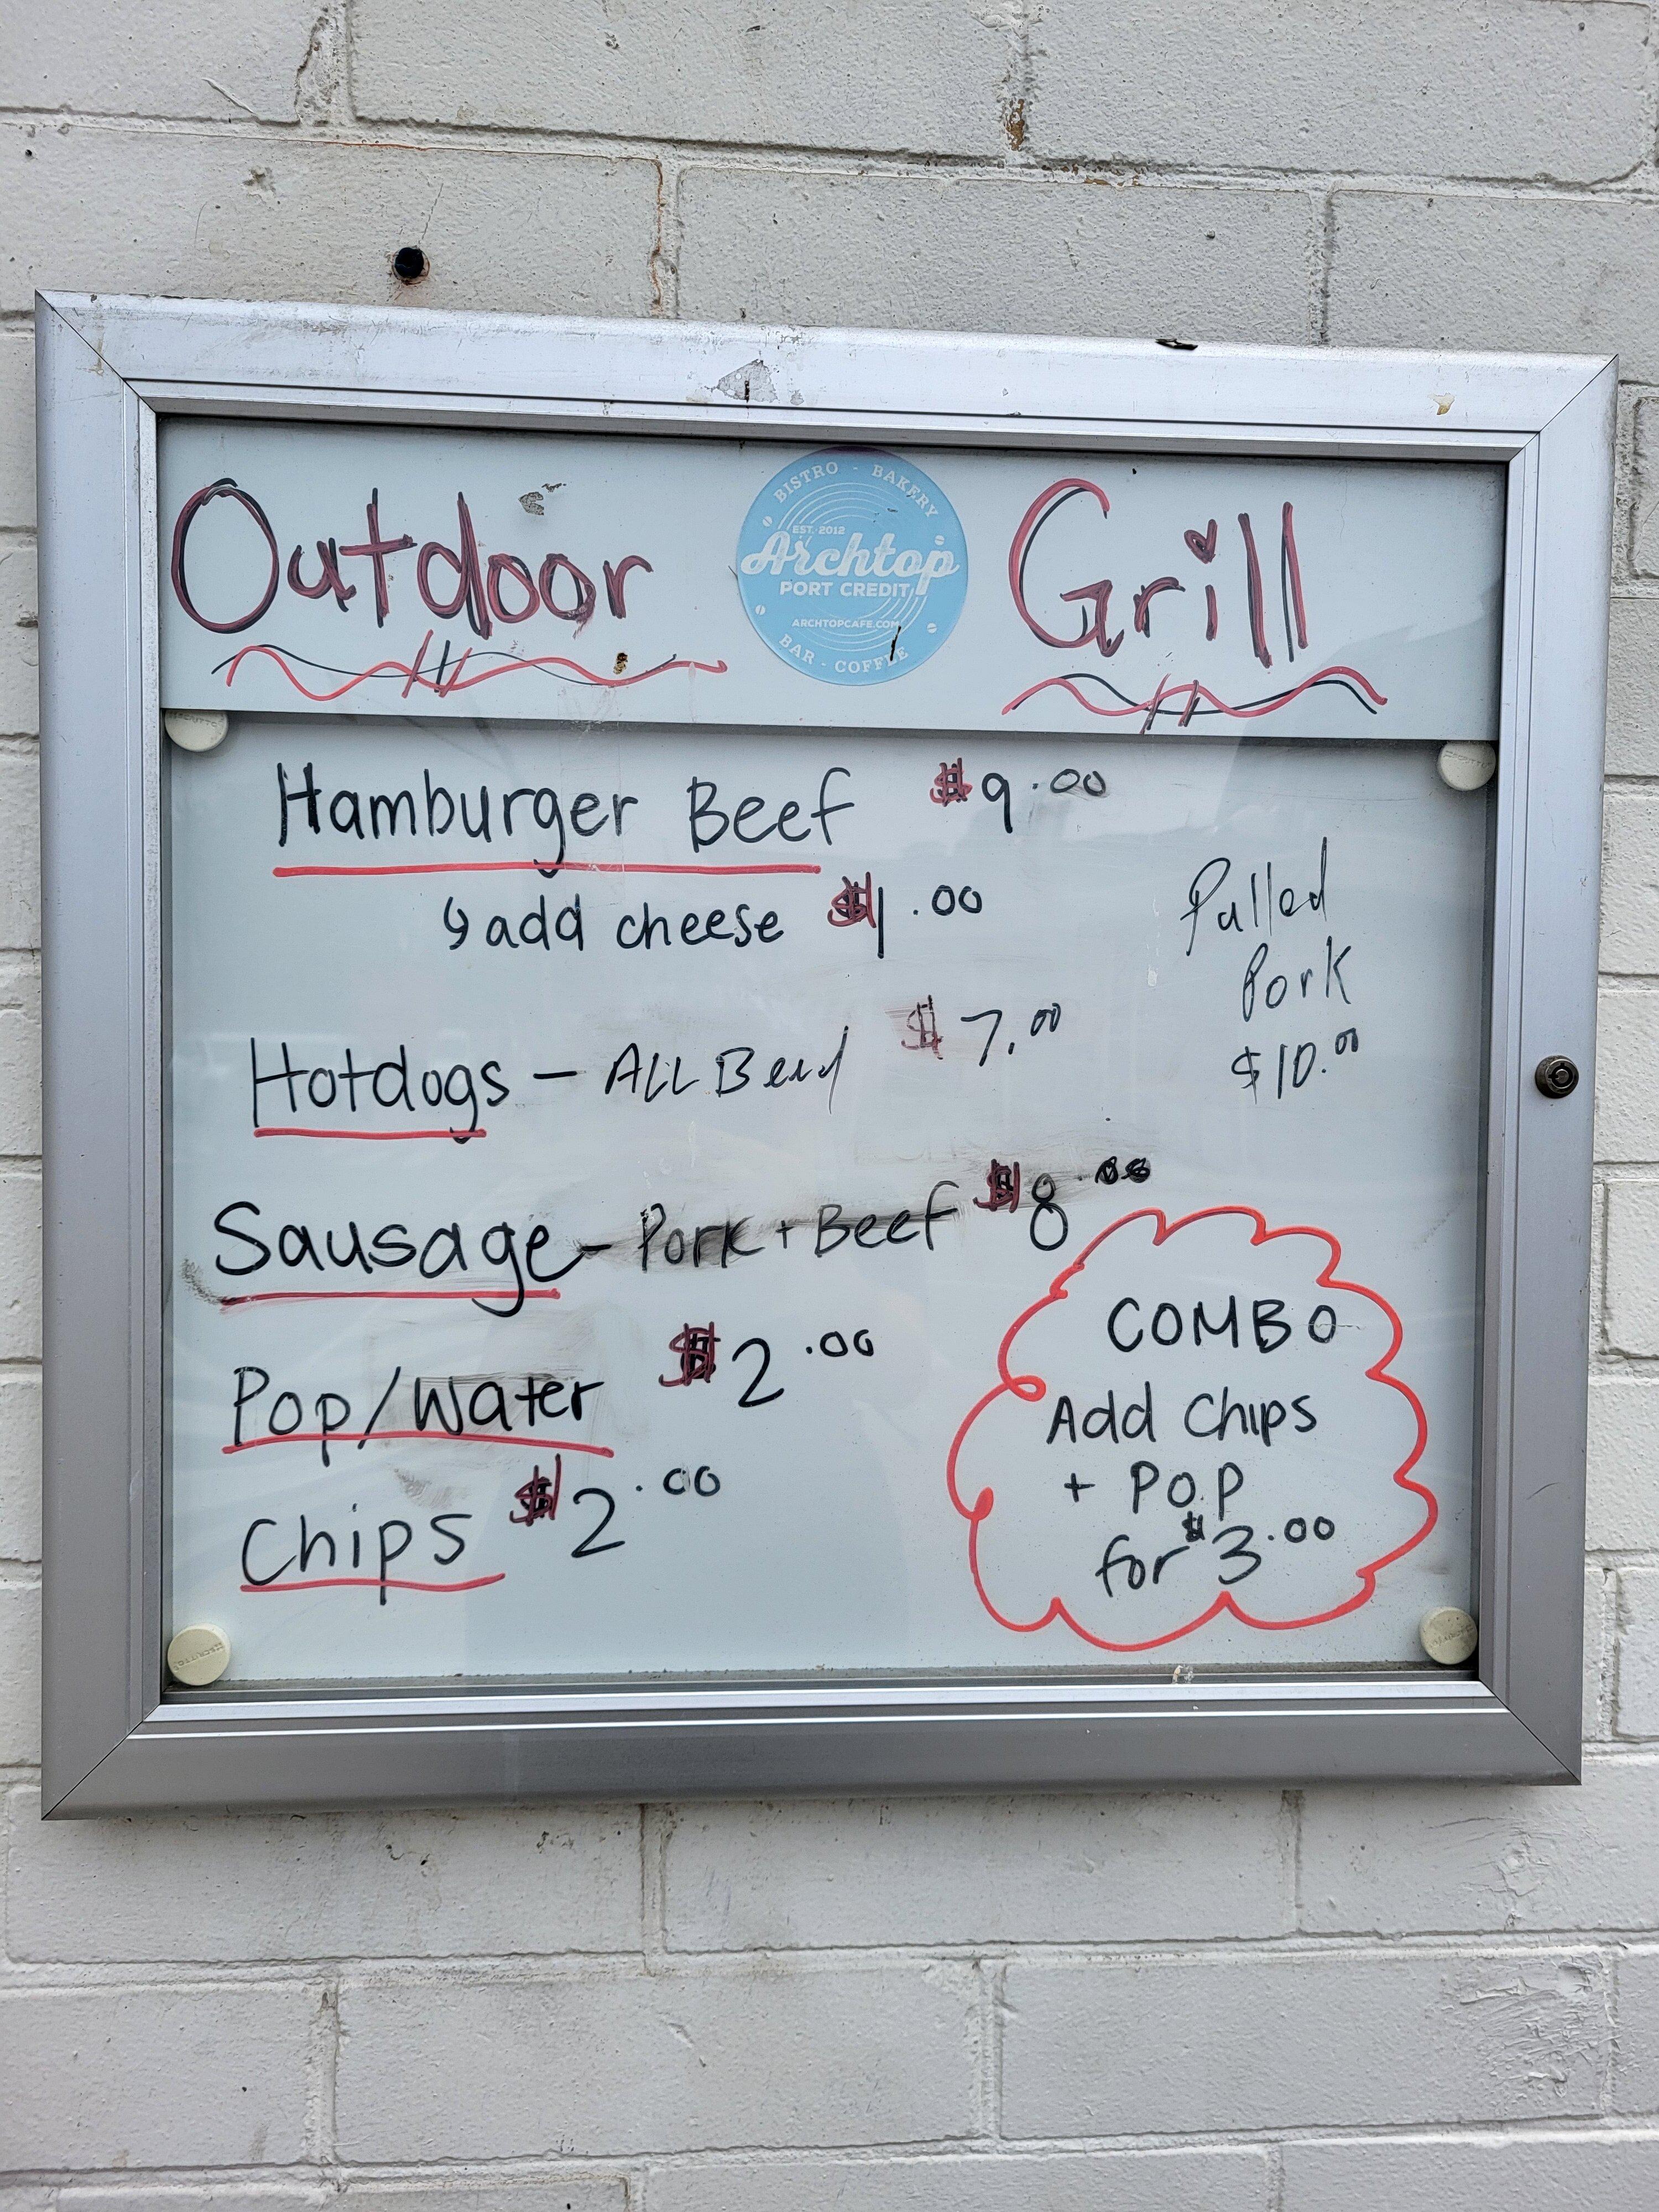 Outdoor Grill
BISTRO - BAKERY
EST. 2012
Archtop
PORT CREDIT
ARCHTOPCAFE.COM
BAR - COFFEE
Hamburger Beef $9.00
↳ add cheese $1.00
Pulled
Pork
$10.00
Hotdogs - ALL Beef $7.00
Sausage - Pork + Beef $8.00
Pop/Water $2.00
Chips $2.00
COMBO
Add Chips
+ POP
for $3.00